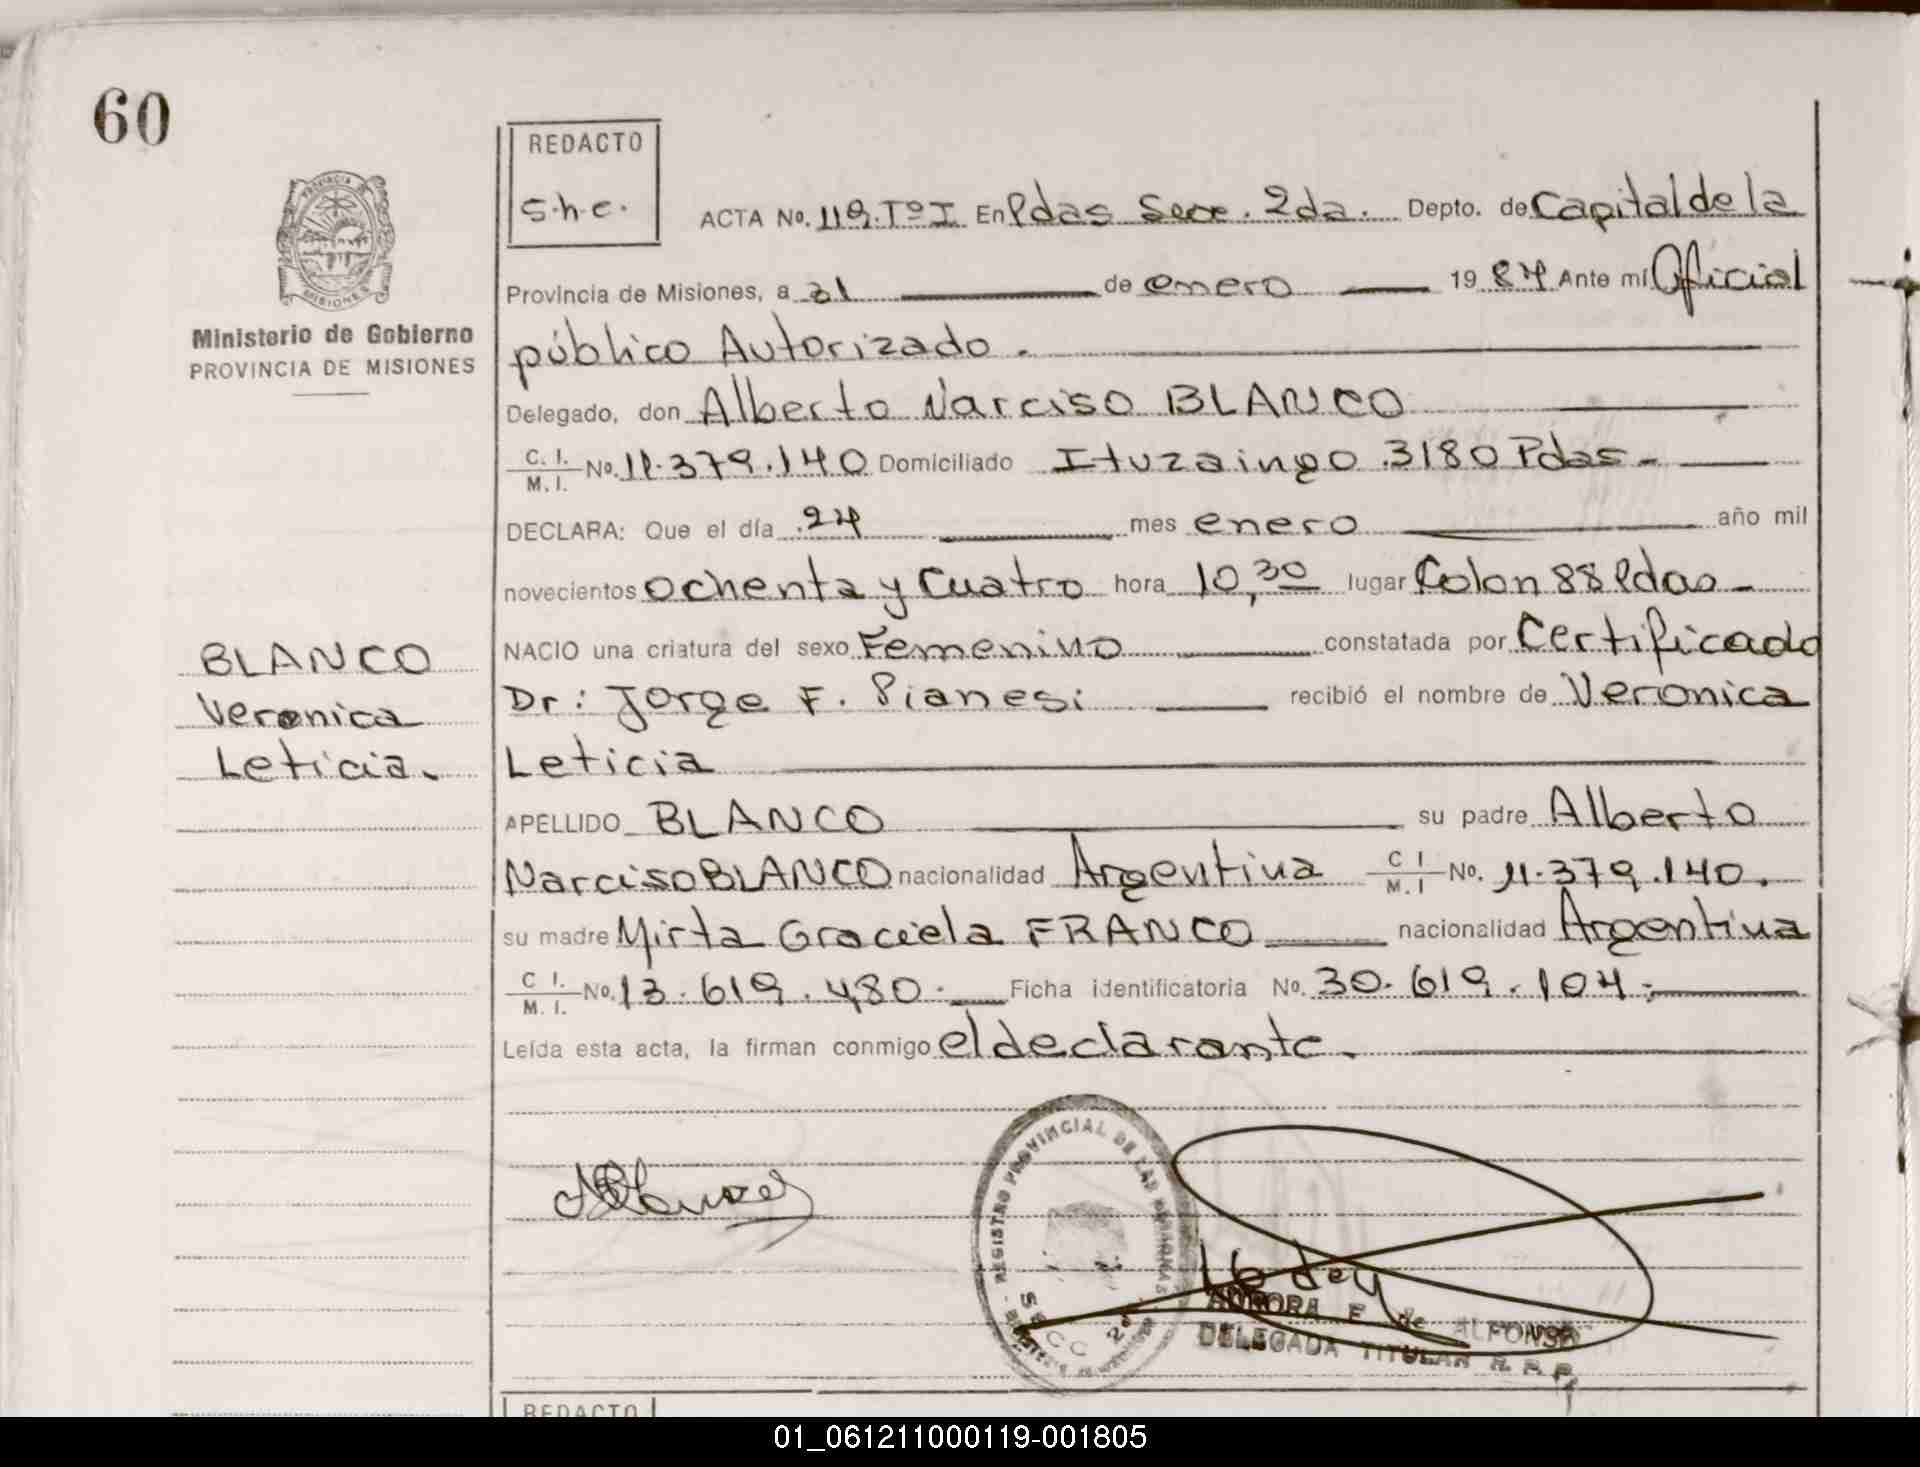 60
REDACTO
S.h.e.
PROVINCIA DE
MISIONES
Ministerio de Gobierno
PROVINCIA DE MISIONES
ACTA No. 119.Tº I En Pdas Secc. 2da. Depto. de Capital de la
Provincia de Misiones, a 31 de enero 1984 Ante mí Oficial
público Autorizado.
Delegado, don Alberto Narciso BLANCO
C. I. M. I. No. 11.379.140 Domiciliado Ituzaingo 3180 Pdas-
DECLARA: Que el día 24 mes enero año mil
novecientos Ochenta y Cuatro hora 10,30 lugar Colon 88 Pdas-
NACIO una criatura del sexo Femenino constatada por Certificado
Dr: Jorge F. Pianesi recibió el nombre de Veronica
Leticia
BLANCO
Veronica
Leticia.
APELLIDO BLANCO su padre Alberto
Narciso BLANCO nacionalidad Argentina C I M. I No. 11.379.140.
su madre Mirta Graciela FRANCO nacionalidad Argentina
C I. M. I. No. 13.619.480. Ficha identificatoria No. 30.619.104.
Leída esta acta, la firman conmigo el declarante.
REGISTRO PROVINCIAL DE LAS PERSONAS
SECC 2º
AURORA E de ALFONSO
DELEGADA TITULAR R. P. P.
REDACTO
01_061211000119-001805